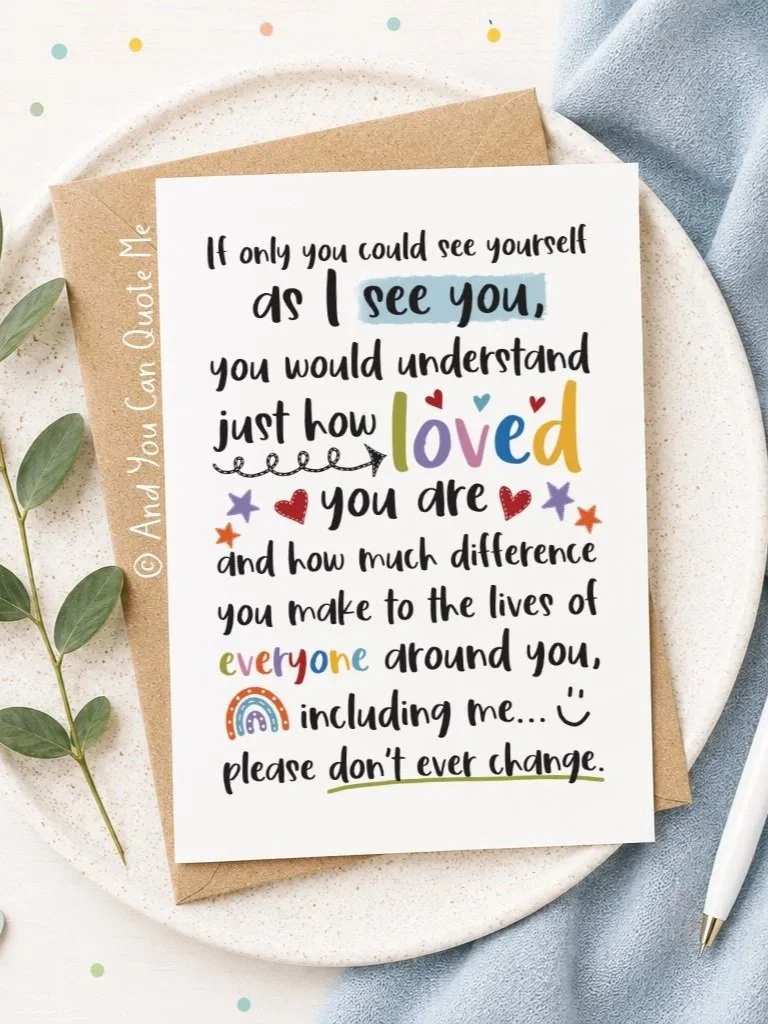 If only you could see yourself
as I see you,
you would understand
just how loved
you are
and how much difference
you make to the lives of
everyone around you,
including me...
please don't ever change.
© And You Can Quote Me